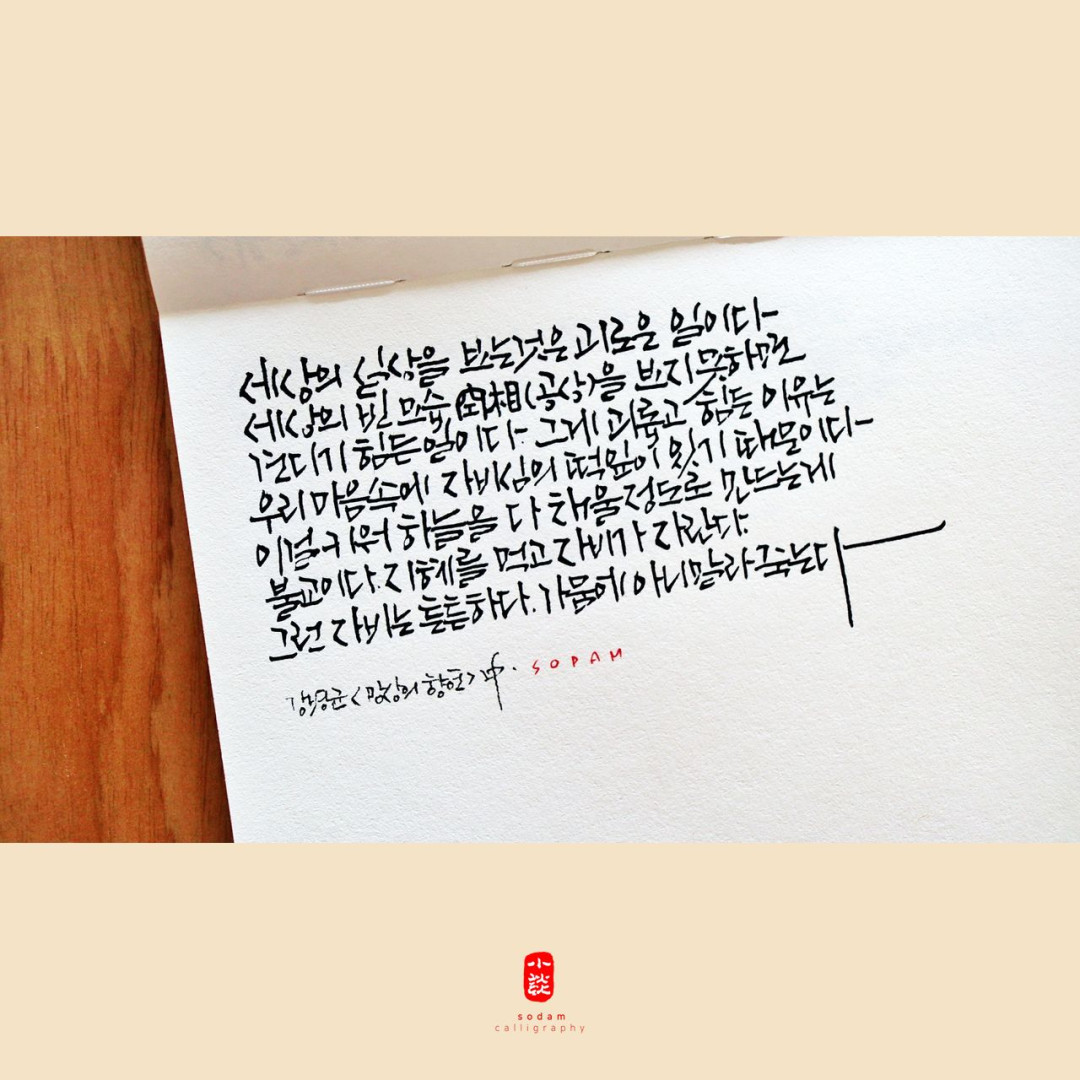 세상의 실상을 보는것은 괴로운 일이다
세상의 빈 모습 空相(공상)을 보지못하면
견디기 힘든일이다. 그래 괴롭고 힘든 이유는
우리 마음속에 자비심의 떡잎이 있기 때문이다
이걸 키워 하늘을 다 채울정도로 만드는게
불교이다. 지혜를 먹고 자비가 자란다.
그런 자비는 튼튼하다. 가뭄에 아니말라죽는다
강병균<망상의 향연>中. SODAM
小談
sodam
calligraphy